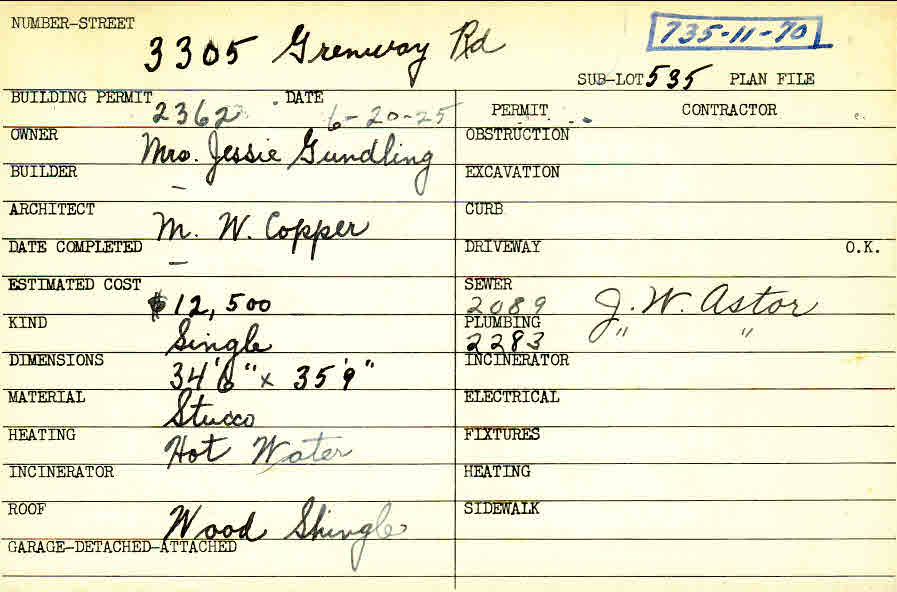 NUMBER-STREET
3305 Grenway Rd
735-11-70
SUB-LOT 535 PLAN FILE
BUILDING PERMIT 2362 DATE 6-20-25
PERMIT CONTRACTOR
OWNER Mrs. Jessie Gundling
OBSTRUCTION
BUILDER –
EXCAVATION
ARCHITECT M. W. Copper
CURB
DATE COMPLETED –
DRIVEWAY O.K.
ESTIMATED COST $12,500
SEWER 2089 J. W. Astor
KIND Single
PLUMBING 2283 " "
DIMENSIONS 34'6" x 35'9"
INCINERATOR
MATERIAL Stucco
ELECTRICAL
HEATING Hot Water
FIXTURES
INCINERATOR
HEATING
ROOF Wood Shingle
SIDEWALK
GARAGE-DETACHED-ATTACHED